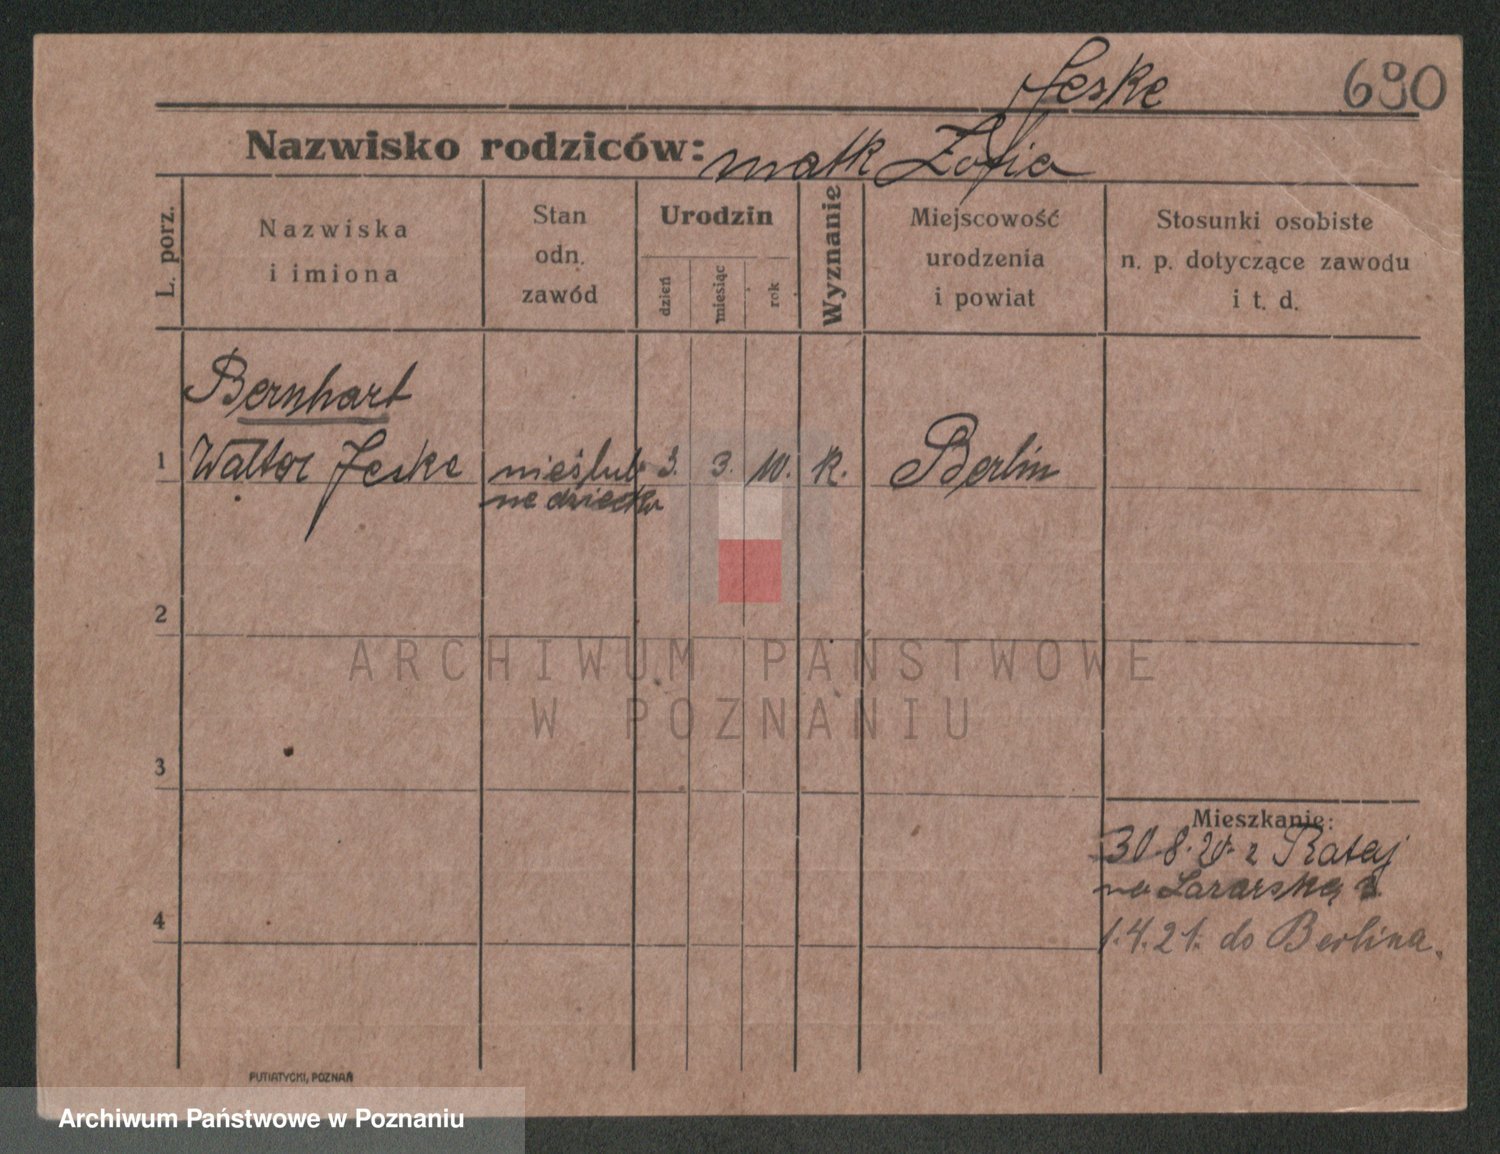 Jeske 690
Nazwisko rodziców: matk Zofia
L. porz.
Nazwiska
i imiona
Stan
odn.
zawód
Urodzin
dzień
miesiąc
rok
Wyznanie
Miejscowość
urodzenia
i powiat
Stosunki osobiste
n. p. dotyczące zawodu
i t. d.
Bernhart
1 Walter Jeske nieślub 3. 3. 10. K. Berlin
ne dziecko
2
ARCHIWUM PAŃSTWOWE
W POZNANIU
3
Mieszkanie:
30.8.20. z Rataj
na Łazarską 3.
4
1.4.21. do Berlina.
PUTIATYCKI, POZNAŃ
Archiwum Państwowe w Poznaniu